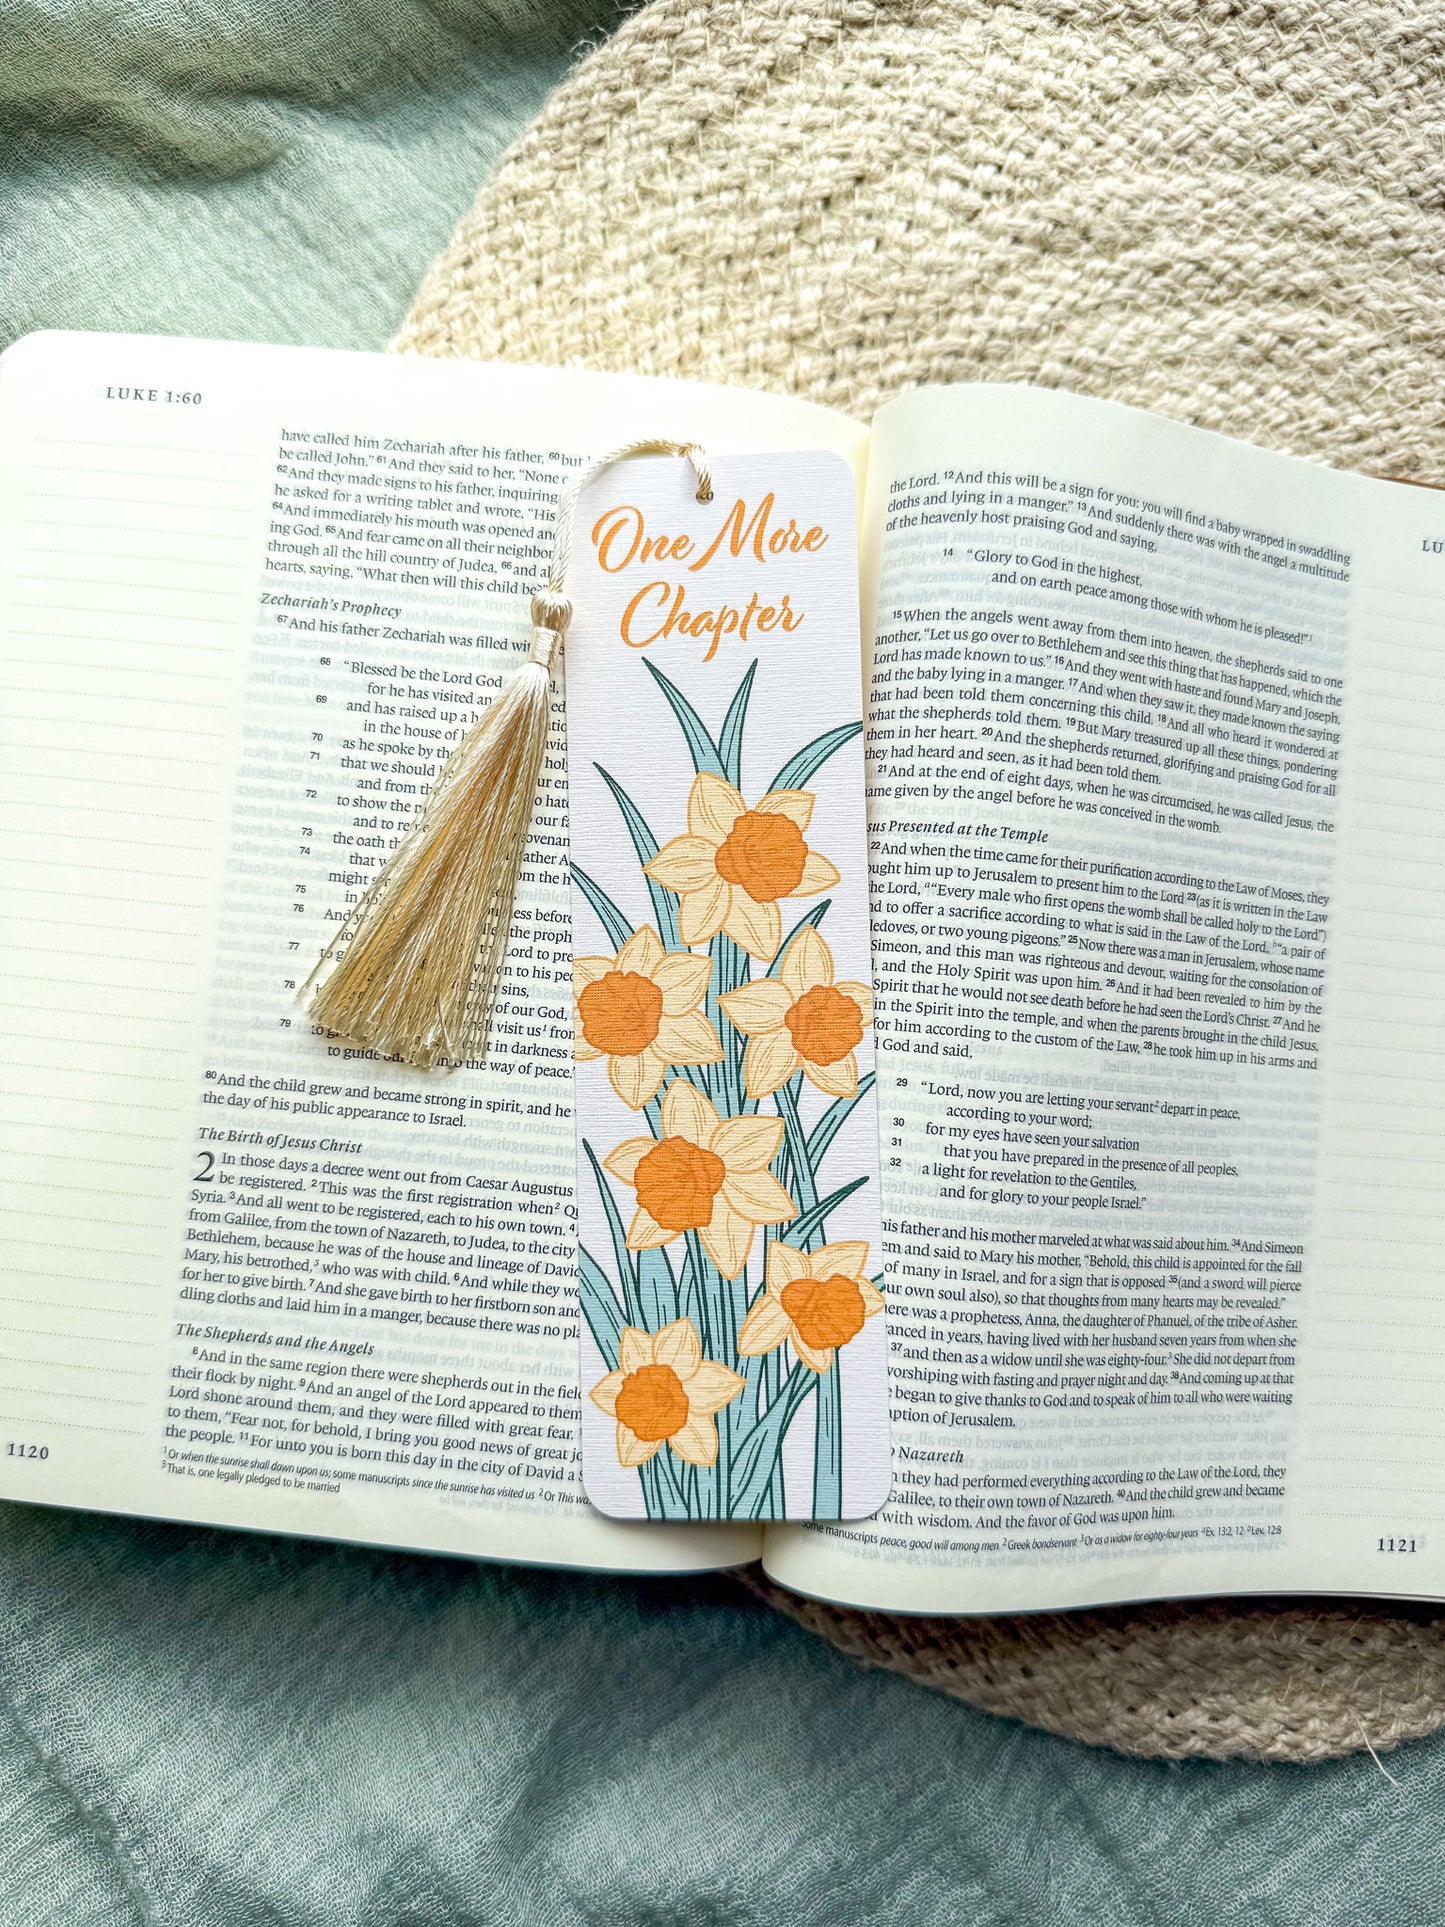 LUKE 1:60
have called him Zechariah after his father, 60 but
be called John.” 61 And they said to her, “None
62 And they made signs to his father, inquiring
he asked for a writing tablet and wrote, “His
64 And immediately his mouth was opened an
ing God. 65 And fear came on all their neighbor
through all the hill country of Judea, 66 and al
hearts, saying, “What then will this child be?”
Zechariah’s Prophecy
67 And his father Zechariah was filled wit
68 “Blessed be the Lord God
69 for he has visited an
and has raised up a h
in the house of
70 as he spoke by the
71 that we should
and from the
72 to show the
and to
73 the oath
74 that
might
75 in
76 And
77 to
78
79 to
to guide our into the way of peace.”
80 And the child grew and became strong in spirit, and he
the day of his public appearance to Israel.
The Birth of Jesus Christ
2 In those days a decree went out from Caesar Augustus
be registered. 2 This was the first registration when 2
Syria. 3 And all went to be registered, each to his own town. 4
from Galilee, from the town of Nazareth, to Judea, to the city
Bethlehem, because he was of the house and lineage of David
Mary, his betrothed, 3 who was with child. 6 And while they we
for her to give birth. 7 And she gave birth to her firstborn son and
dling cloths and laid him in a manger, because there was no pla
The Shepherds and the Angels
8 And in the same region there were shepherds out in the fiel
their flock by night. 9 And an angel of the Lord appeared to them
Lord shone around them, and they were filled with great fear.
to them, “Fear not, for behold, I bring you good news of great jo
the people. 11 For unto you is born this day in the city of David a
1 Or when the sunrise shall dawn upon us; some manuscripts since the sunrise has visited us 2 Or This was
3 That is, one legally pledged to be married
1120
One More
Chapter
LU
the Lord. 12 And this will be a sign for you: you will find a baby wrapped in swaddling
cloths and lying in a manger.” 13 And suddenly there was with the angel a multitude
of the heavenly host praising God and saying,
14 “Glory to God in the highest,
and on earth peace among those with whom he is pleased!” 1
15 When the angels went away from them into heaven, the shepherds said to one
another, “Let us go over to Bethlehem and see this thing that has happened, which the
Lord has made known to us.” 16 And they went with haste and found Mary and Joseph,
and the baby lying in a manger. 17 And when they saw it, they made known the saying
that had been told them concerning this child. 18 And all who heard it wondered at
what the shepherds told them. 19 But Mary treasured up all these things, pondering
them in her heart. 20 And the shepherds returned, glorifying and praising God for all
they had heard and seen, as it had been told them.
21 And at the end of eight days, when he was circumcised, he was called Jesus, the
ame given by the angel before he was conceived in the womb.
sus Presented at the Temple
22 And when the time came for their purification according to the Law of Moses, they
ought him up to Jerusalem to present him to the Lord 23 (as it is written in the Law
the Lord, a “Every male who first opens the womb shall be called holy to the Lord”)
nd to offer a sacrifice according to what is said in the Law of the Lord, b “a pair of
ledoves, or two young pigeons.” 25 Now there was a man in Jerusalem, whose name
Simeon, and this man was righteous and devout, waiting for the consolation of
l, and the Holy Spirit was upon him. 26 And it had been revealed to him by the
Spirit that he would not see death before he had seen the Lord’s Christ. 27 And he
in the Spirit into the temple, and when the parents brought in the child Jesus,
for him according to the custom of the Law, 28 he took him up in his arms and
d God and said,
29 “Lord, now you are letting your servant 2 depart in peace,
according to your word;
30 for my eyes have seen your salvation
31 that you have prepared in the presence of all peoples,
32 a light for revelation to the Gentiles,
and for glory to your people Israel.”
his father and his mother marveled at what was said about him. 34 And Simeon
em and said to Mary his mother, “Behold, this child is appointed for the fall
of many in Israel, and for a sign that is opposed 35 (and a sword will pierce
ur own soul also), so that thoughts from many hearts may be revealed.”
ere was a prophetess, Anna, the daughter of Phanuel, of the tribe of Asher.
anced in years, having lived with her husband seven years from when she
37 and then as a widow until she was eighty-four. 3 She did not depart from
worshiping with fasting and prayer night and day. 38 And coming up at that
began to give thanks to God and to speak of him to all who were waiting
ption of Jerusalem.
Nazareth
they had performed everything according to the Law of the Lord, they
Galilee, to their own town of Nazareth. 40 And the child grew and became
with wisdom. And the favor of God was upon him.
Some manuscripts peace, good will among men 2 Greek bondservant 3 Or as a widow for eighty-four years a Ex. 13:2, 12 b Lev. 12:8
1121